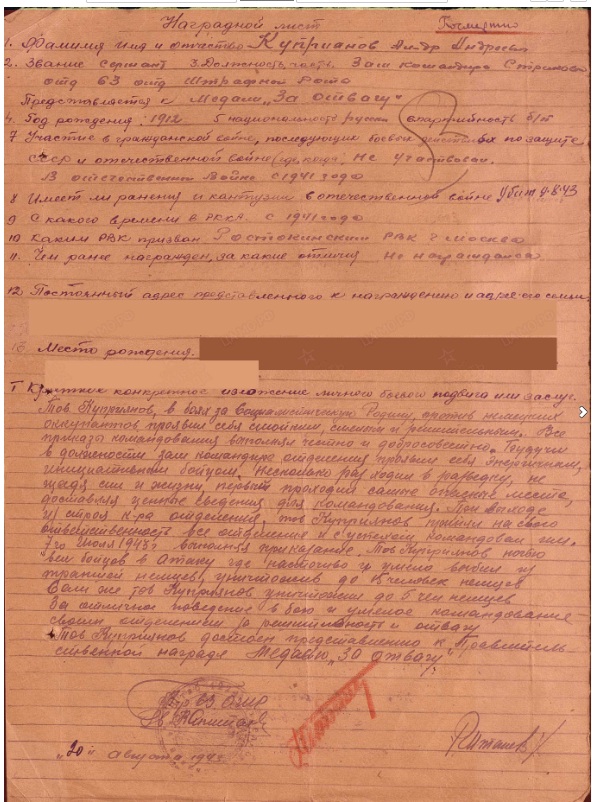 Наградной лист Посмертно
1. Фамилия имя и отчество Куприянов Андр Андреев
2. Звание Сержант 3. Должность, часть. Зам командира Стрелково
отд 63 отд Штрафной Рота
Представляется к Медали "За отвагу"
4. Год рождения: 1912 5 национальность русск 6 партийность б/п
7 Участие в гражданской войне, последующих боевых действиях по защите
ссср и отечественной войне (где, когда) Не участвовал.
В отечественной войне с 1941 года
8 Имеет ли ранения и контузии в отечественной войне Убит 4.8.43
9 С какого времени в РККА. с 1941 года
10 Каким РВК призван Ростокинским РВК г Москва
11. Чем ранее награжден, за какие отличия Не награждался
12. Постоянный адрес представленного к награждению и адрес его семьи.
Место рождения.
I Краткое конкретное изложение личного боевого подвига или заслуг.
Тов Куприянов, в боях за Социалистическую Родину, против немецких
оккупантов проявил себя стойким, смелым и решительным. Все
приказы командования выполнял честно и добросовестно. Будучи
в должности зам командира отделения проявил себя энергичным,
инициативным бойцом. Несколько раз ходил в разведку, не
щадя сил и жизни, первый проходил самые опасные места,
доставляя ценные сведения для командования. При выходе
из строя к-ра отделения, тов Куприянов принял на свою
ответственность все отделение и с успехом командовал им.
7го июля 1943г выполняя приказание Тов Куприянов ночью
вел бойцов в атаку где настойчиво и умело выбил из
траншей немцев, уничтожив до человек немцев
Сам же тов Куприянов уничтожил до 5 чел немцев
За отличное поведение в бою и умелое командование
своим отделением за решительность и отвагу
Тов Куприянов достоин представлению к Правитель
ственной награде Медалью "За отвагу"
"20" августа 1943г